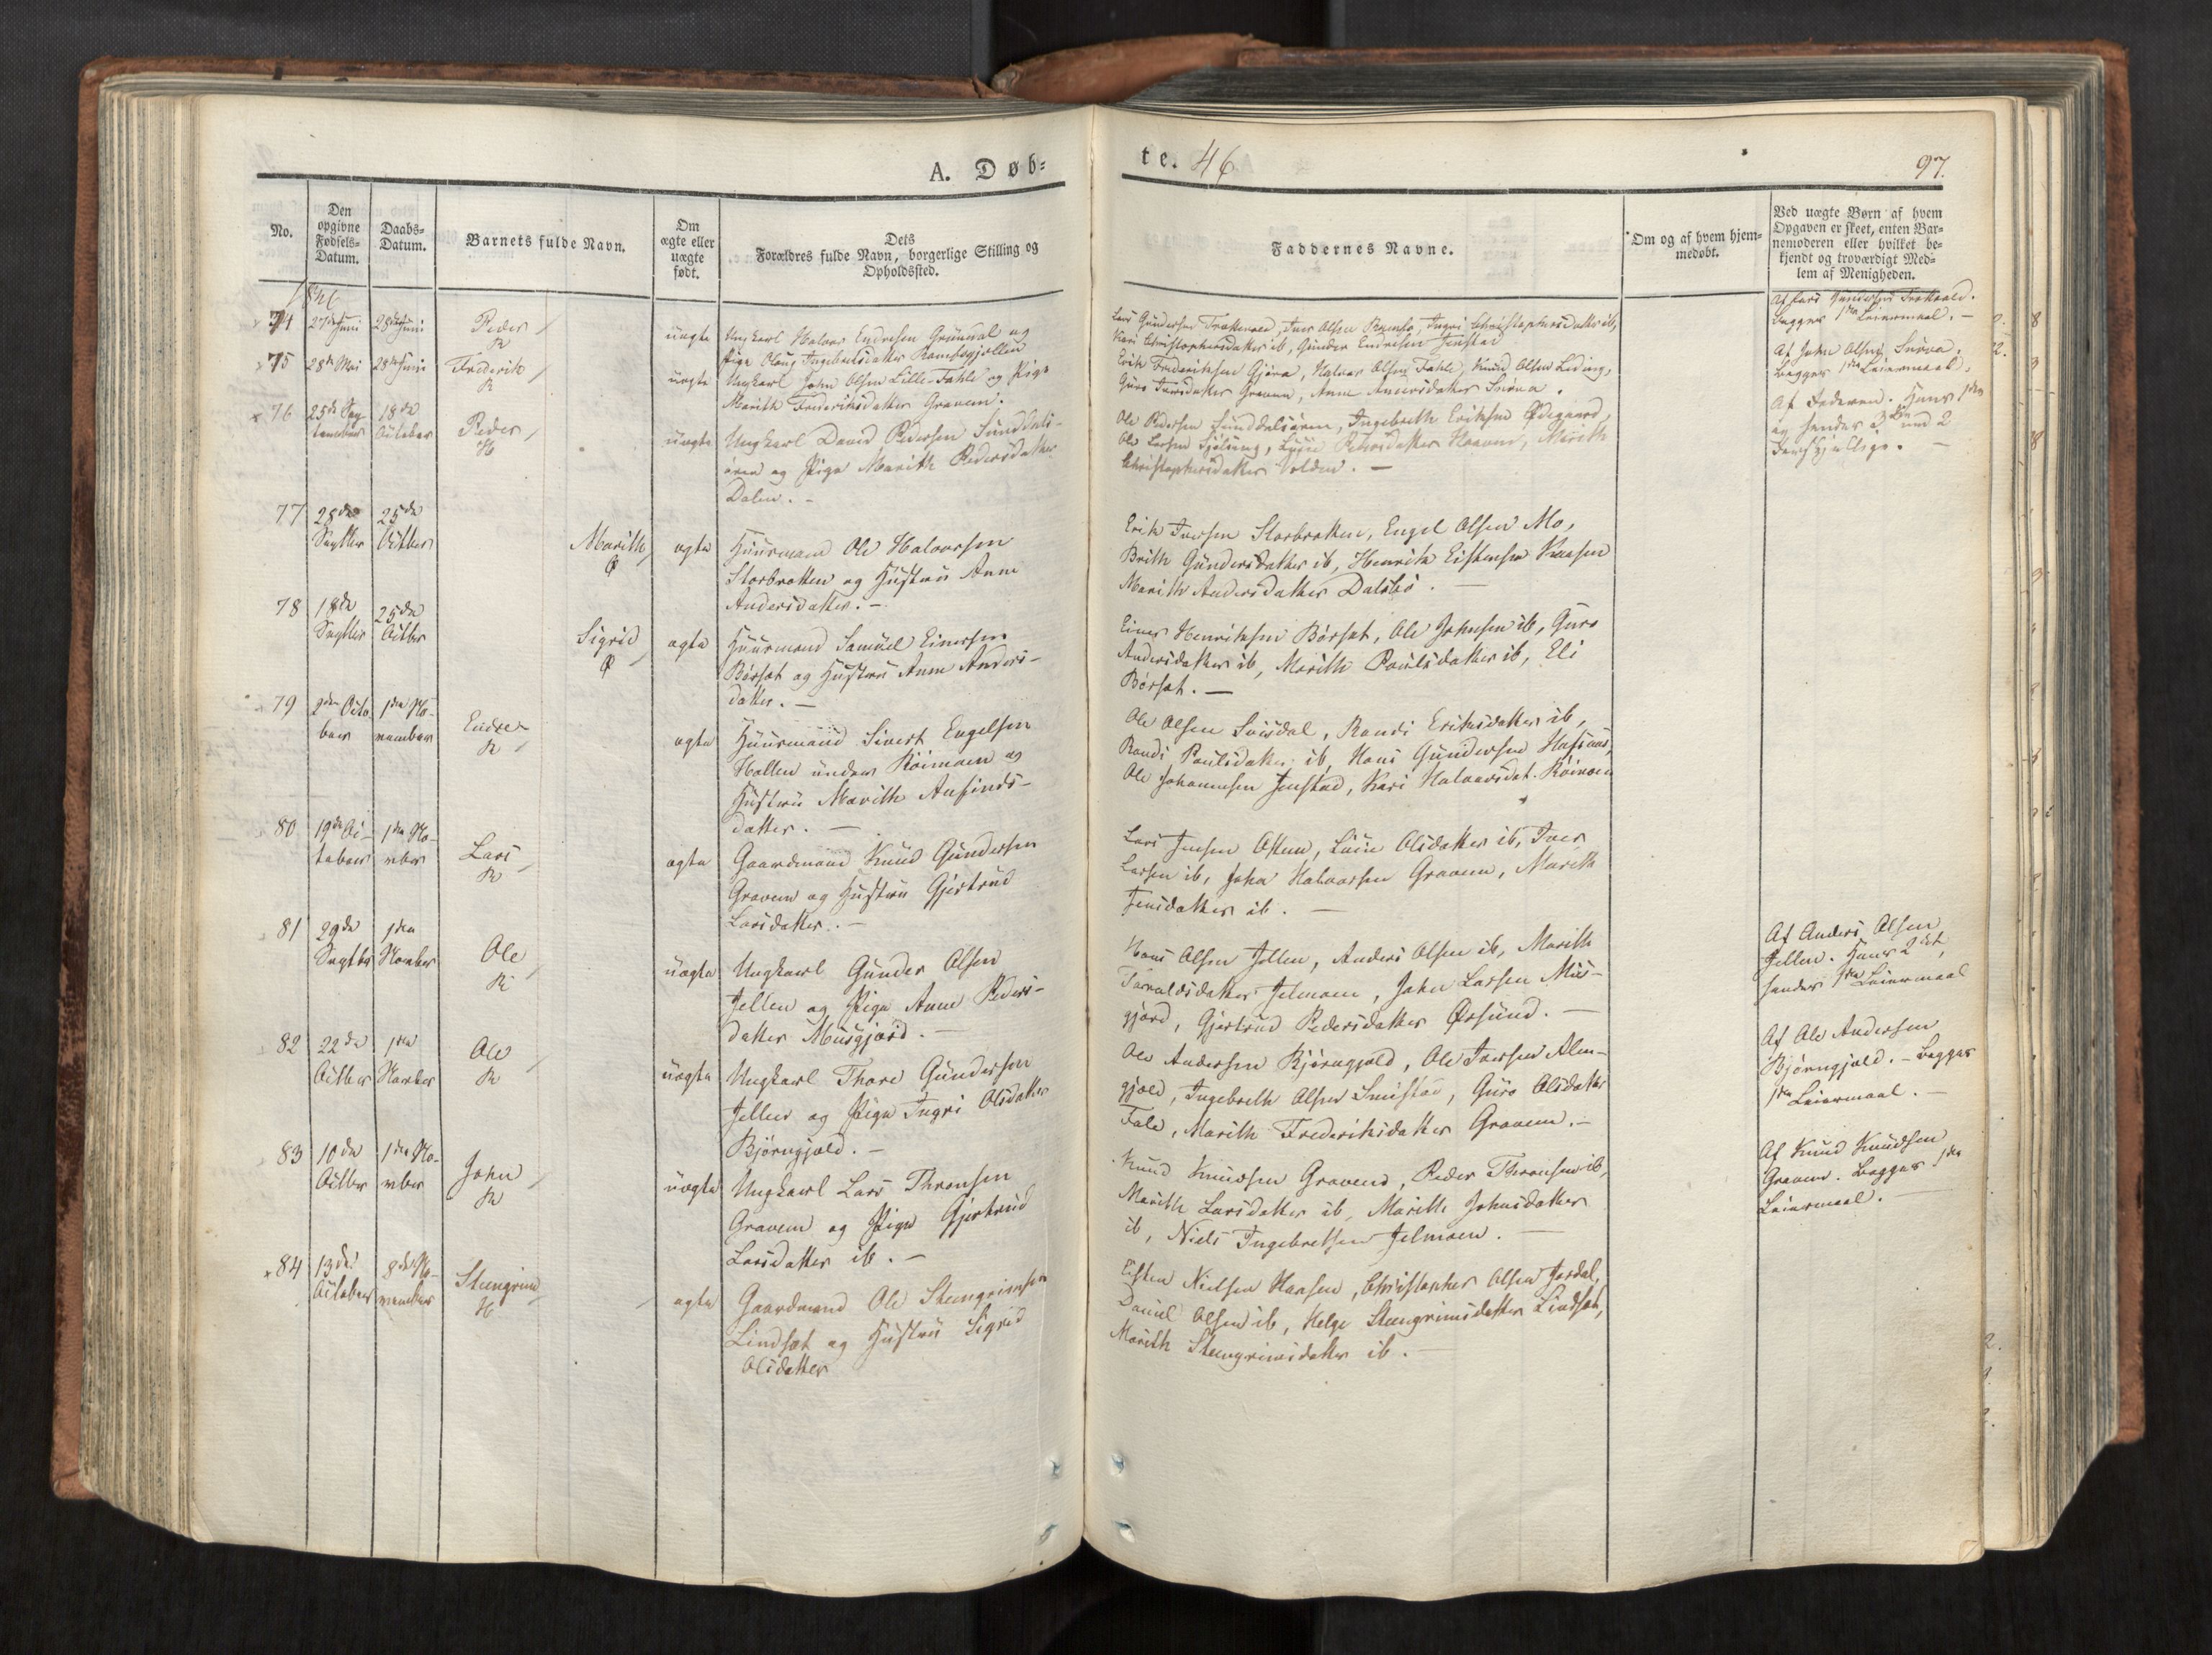 A. Døb=
te. 46
97.
No.
Den opgivne Fødsels= Datum.
Daabs= Datum.
Barnets fulde Navn.
Om ægte eller uægte født.
Dets Forældres fulde Navn, borgerlige Stilling og Opholdssted.
Faddernes Navne.
Om og af hvem hjem= medøbt.
Ved uægte Børn af hvem Opgaven er skeet, enten Bar= nemoderen eller hvilket be= kjendt og troværdigt Med= lem af Menigheden.
1846
74 27de Juni 28de Juni Peder R uægte
Ungkarl Halvor Endresen Grønndal og
Pige Olaug Ingebrigtsdatter
Lars Gundersen Iver Olsen Ingri Christophersdatter ib,
Kari Christophersdatter ib, Gunder Endresen Jenstad
Af Lars Gundersen
Begges 1ste Leiermaal. –
75 28de Mai 28de Juni Frederik R uægte
Ungkarl John Olsen Lille-Fahle og Pige
Marith Frederiksdatter Gravem.
Erik Frederiksen Gjøra, Halvor Olsen Fahle, Knud Olsen
Guro Iversdatter Gravem, Anne Andersdatter
Af John Olsen
Begges 1ste Leiermaal.
76 25de Sep- 18de Peder H uægte
tember October
Ungkarl David Pedersen Sunddals-
øren og Pige Marith Pedersdatter
Dalen. –
Ole Pedersen Sunddalsøren, Ingebrigt Eriksen Ødegaard,
Ole Larsen Marith
Christophersdatter Volden. –
Af Faderen. Hans 1ste
og hendes 3die med 2
Forskjellige. –
77 28de 25de
Septbr Octbr Marith Ø ægte
Huusmand Ole Halvorsen
Storbrotten og Hustru Anne
Andersdatter. –
Erik Iversen Storbrotten, Engel Olsen Mo,
Brith Gundersdatter ib, Henrik Eistensen
Marith Andersdatter Dalsbø. –
78 18de 25de
Septbr Octbr Sigrid Ø ægte
Huusmand Samuel Einersen
Børset og Hustru Anne Anders-
datter. –
Einer Henriksen Børset, Ole Johnsen ib, Guro
Andersdatter ib, Marith Poulsdatter ib, Eli
Børset. –
79 2den Octo- 1ste No-
ber vember Endre R ægte
Huusmand Sivert Engelsen
Hallen under Røimoen og
Hustru Marith Anfinds-
datter. –
Ole Olsen Svisdal, Randi Eriksdatter ib,
Randi Poulsdatter ib, Hans Gundersen
Ole Johannesen Jenstad, Kari Halvorsdat. Røimoen
80 19de Oc- 1ste No-
tober vbr Lars R ægte
Gaardmand Knud Gundersen
Gravem og Hustru Gjertrud
Larsdatter. –
Lars Jensen Olsdatter ib, Iver
Larsen ib, John Halvorsen Gravem, Marith
Jensdatter ib. –
81 29de 1ste
Septbr Novbr Ole R uægte
Ungkarl Gunder Olsen
Jellen og Pige Anne Peders-
datter Musgjærd. –
Hans Olsen Jellen, Anders Olsen ib, Marith
Toraldsdatter Jelmoen, John Larsen Mus-
gjærd, Gjertrud Pedersdatter Ørsund. –
Af Anders Olsen
Jellen. Hans 2det,
hendes 1ste Leiermaal
82 22de 1ste
Octbr Novbr Ole R uægte
Ungkarl Thore Gundersen
Jellen og Pige Ingri Olsdatter
Bjørngjeld. –
Ole Andersen Bjørngjeld, Ole Iversen Alm-
gjeld, Ingebreth Olsen Smistad, Guro Olsdatter
Fale, Marith Frederiksdatter Gravem. –
Af Ole Andersen
Bjørngjeld. – Begges
1ste Leiermaal. –
83 10de 1ste No-
Octbr vbr John R uægte
Ungkarl Lars Thronsen
Gravem og Pige Gjertrud
Larsdatter ib. –
Knud Knudsen Gravem, Peder Thronsen ib,
Marith Larsdatter ib, Marith Johnsdatter
ib, Niels Ingebretsen Jelmoen. –
Af Knud Knudsen
Gravem. Begges 1ste
Leiermaal. –
84 13de 8de No-
October vember Steengrim H ægte
Gaardmand Ole Steengrimsen
Lindset og Hustru Sigrid
Olsdatter
Eisten Nielsen Hansen, Christopher Olsen Jordal,
Daniel Olsen ib, Helge Steengrimsdatter Lindset,
Marith Steengrimsdatter ib. –